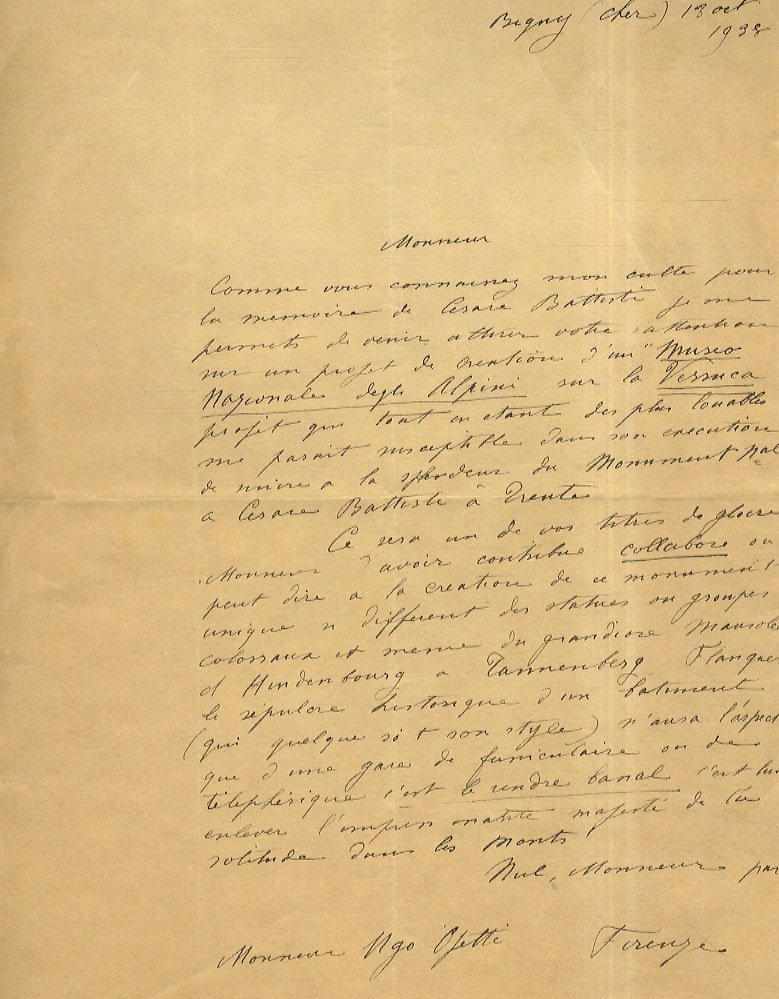 Bigny (Cher) 18 oct
1938
Monsieur
Comme vous connaissez mon culte pour
la memoire de Cesare Battisti je me
permets de venir attirer votre attention
sur un projet de creation d'un "Museo
Nazionale degli Alpini sur la Verruca
projet qui tout en etant des plus louables
me parait susceptible dans son execution
de nuire a la splendeur du Monument Nal
a Cesare Battisti à Trente
Ce sera un de vos titres de gloire
Monsieur d'avoir contribué collabore on
peut dire a la creation de ce monument
unique si different des statues ou groupes
colossaux et meme du grandiose Mausole
d Hindenbourg a Tannenberg Flanquer
le sépulcre historique d'un batiment
(qui quelque soit son style) n'aura l'aspect
que d'une gare de funiculaire ou de
téléphérique c'est le rendre banal c'est lui
enlever l'impressionante majesté de la
solitude dans les monts
Nul, Monsieur par
Monsieur Ugo Ojetti Firenze